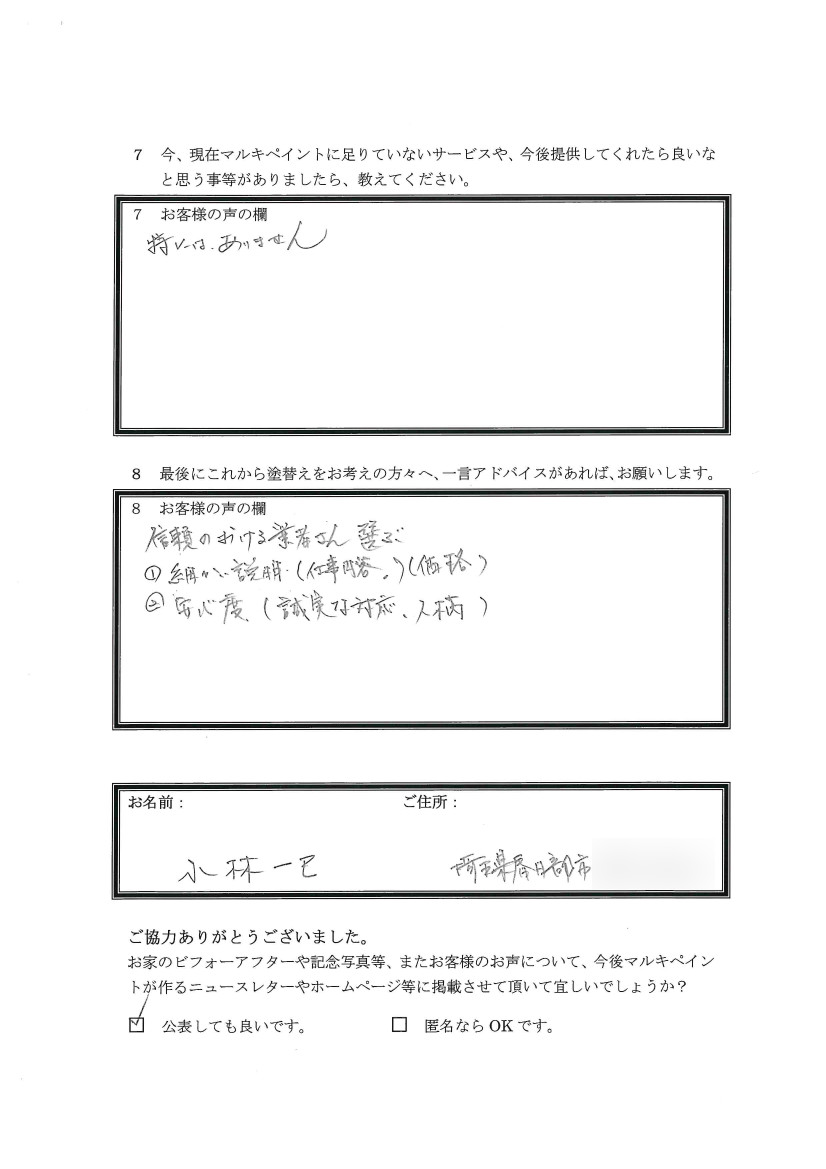 7 今、現在マルキペイントに足りていないサービスや、今後提供してくれたら良いな
と思う事等がありましたら、教えてください。
7 お客様の声の欄
特には、ありません
8 最後にこれから塗替えをお考えの方々へ、一言アドバイスがあれば、お願いします。
8 お客様の声の欄
信頼のおける業者さん選ぶ
① 細かい説明(仕事内容。)(価格)
② 安心度(誠実な対応、人柄)
お名前： ご住所：
小林一己 埼玉県春日部市
ご協力ありがとうございました。
お家のビフォーアフターや記念写真等、またお客様のお声について、今後マルキペイン
トが作るニュースレターやホームページ等に掲載させて頂いて宜しいでしょうか？
☑ 公表しても良いです。 □ 匿名なら OK です。